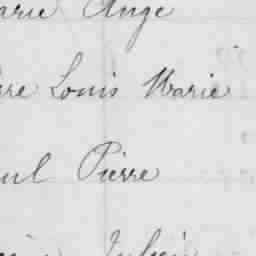 Marie Ange
Pierre Louis Marie
Paul Pierre
Julien